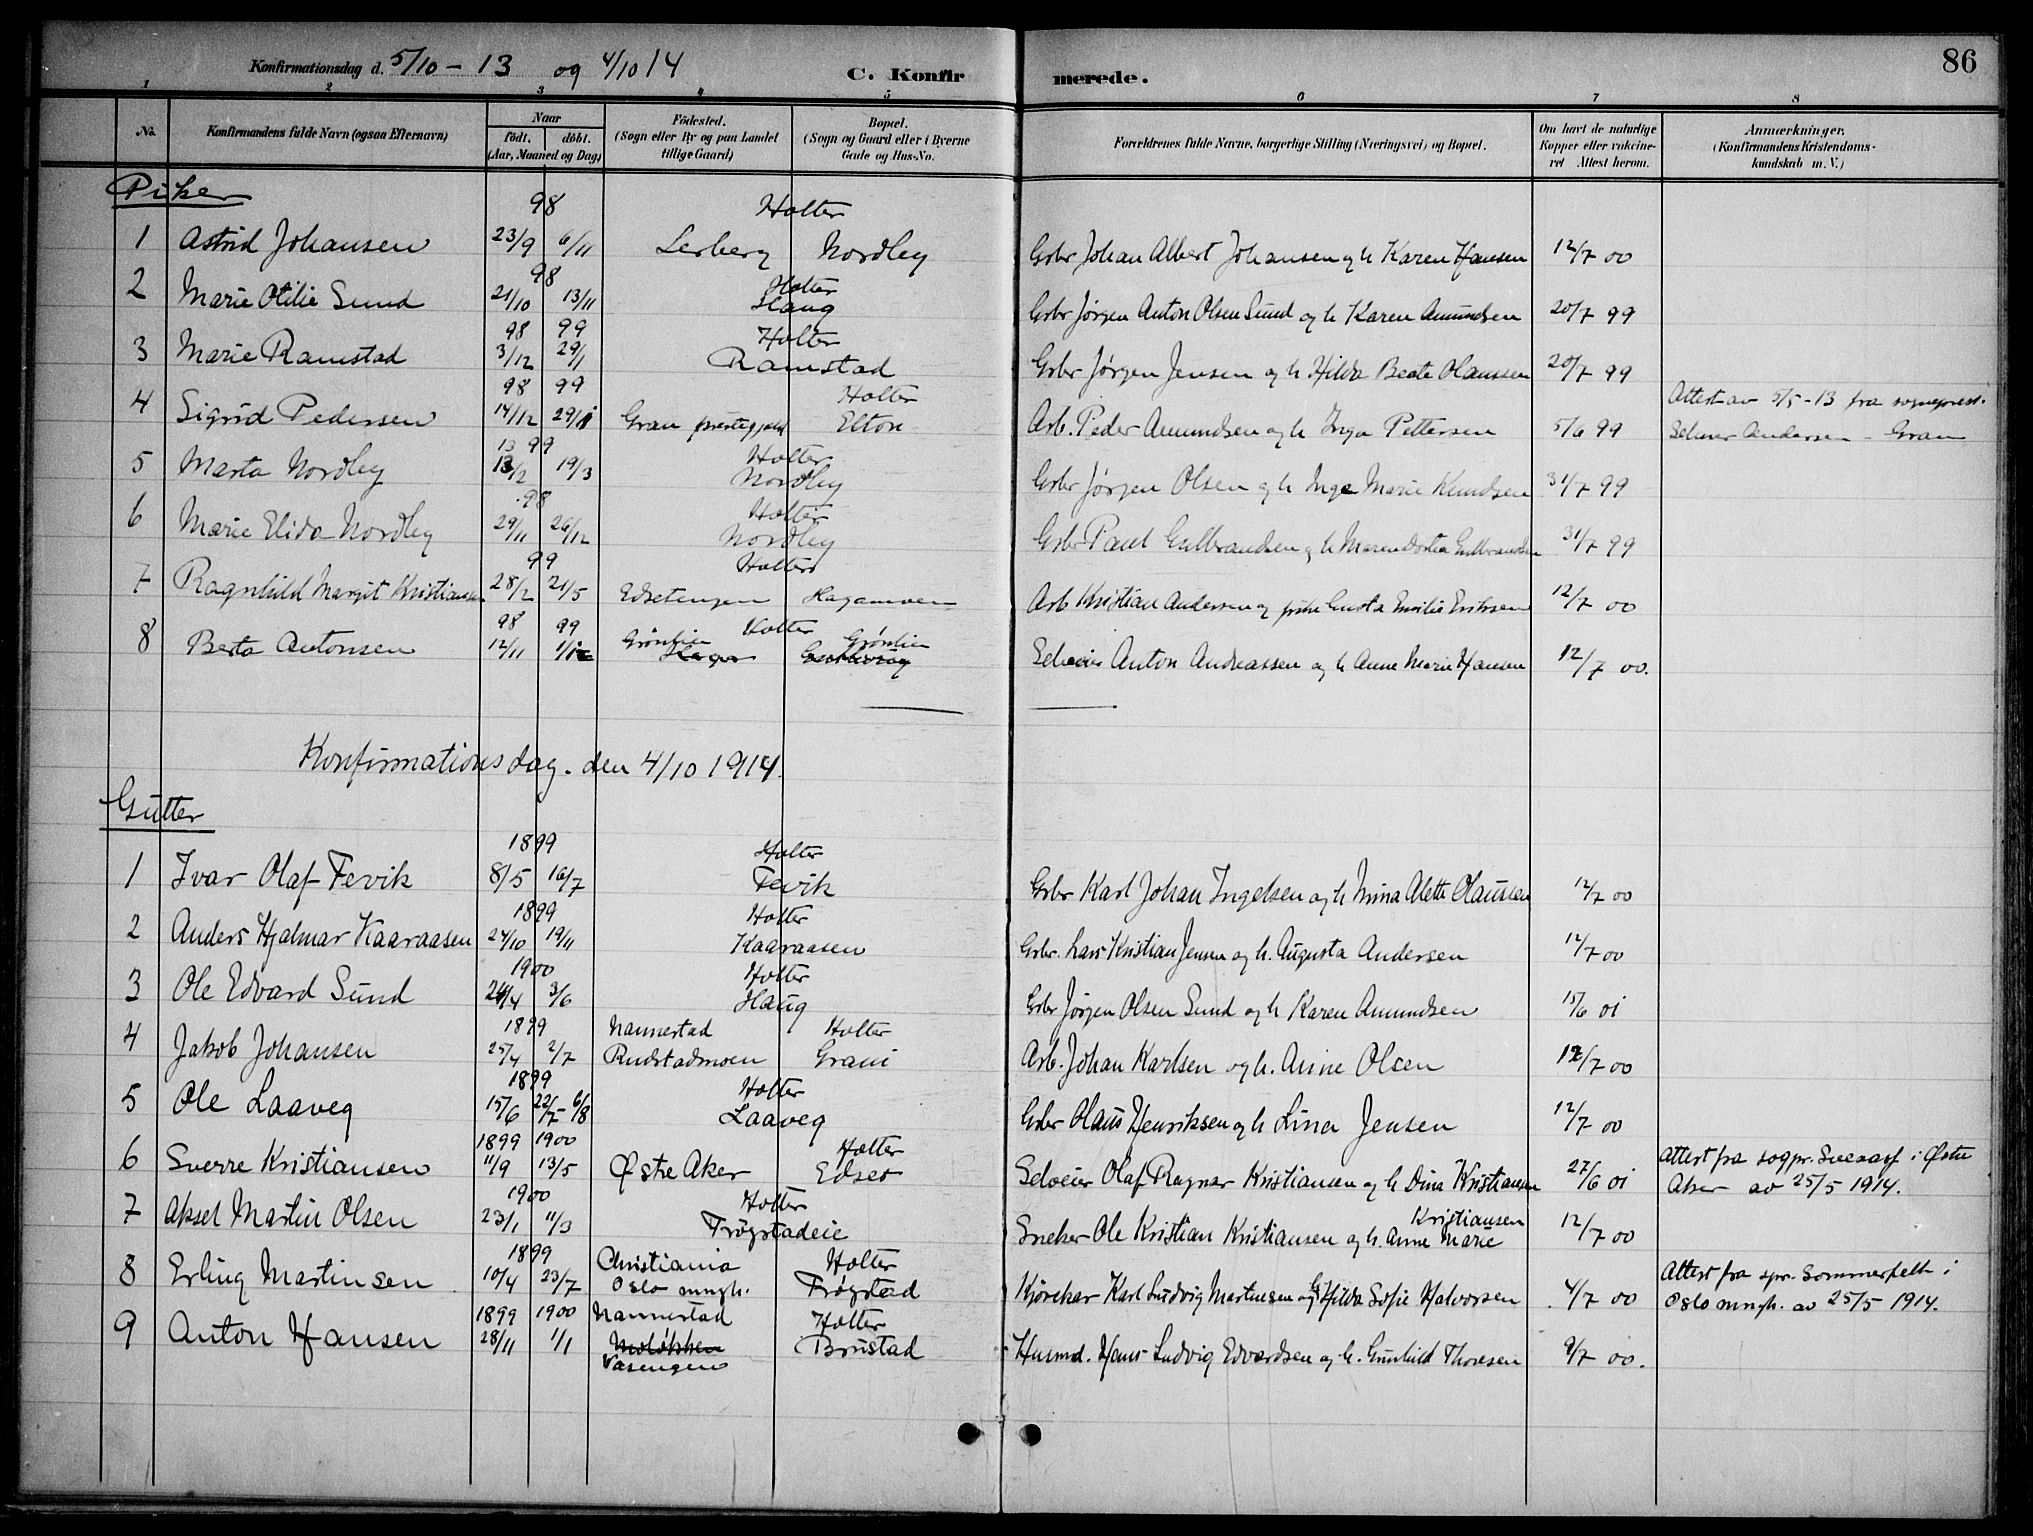 86
Konfirmationsdag d. 5/10 - 13 og 4/10 14 C. Konfir merede.
1 2 3 4 5 6 7 8
No. Konfirmandens fulde Navn (ogsaa Efternavn) Naar født. døbt. (Aar, Maaned og Dag) Fødested. (Sogn eller By og paa Landet tillige Gaard) Bopæl. (Sogn og Gaard eller i Byerne Gade og Hus-No. Forældrenes fulde Navne, borgerlige Stilling (Næringsvei) og Bopæl. Om havt de naturlige Kopper eller vakcineret Attest herom. Anmærkninger. (Konfirmandens Kristendomskundskab m. V.)
Piker
98 Holter
1 Astrid Johansen 23/9 6/11 Lerberg Nordby Gbr Johan Albert Johansen og h Karen Hansen 12/7 00
98 Holter
2 Marie Otilie Sund 21/10 13/11 Haug Gbr Jørgen Anton Olsen Sund og h Karen Amundsen 20/7 99
98 99 Holter
3 Marie Ramstad 3/12 29/1 Ramstad Gbr Jørgen Jensen og h Hilda Beate Olaussen 20/7 99
98 99 Holter Attest av 5/5 - 13 fra sogneprest
4 Sigrid Pedersen 14/12 29/1 Gran prestegjeld Elton Arb. Peder Amundsen og h Inga Pettersen 5/6 99 Andersen - Gran
13 99 Holter
5 Marta Nordby 13/2 19/3 Nordby Gbr Jørgen Olsen og h Inge Marie Knudsen 31/7 99
98 Holter
6 Marie Elida Nordby 29/11 26/12 Nordby Gbr Paul Gulbrandsen og h Maren Dortea Gulbrandsen 31/7 99
99 Holter
7 Ragnhild Margit Kristiansen 28/2 21/5 Edsetengen Hagamoen Arb Kristian Andersen og Gusta Emilie Eriksen 12/7 00
98 99 Grønlien Holter Grønlien
8 Berta Antonsen 12/11 1/1 Haga Selveier Anton Andreassen og h Anne Marie Hansen 12/7 00.
Konfirmations dag. den 4/10 1914.
Gutter
1899 Holter
1 Ivar Olaf Fevik 8/5 16/7 Fevik Gbr Karl Johan Ingelsen og h Mina Alette Olaussen 12/7 00
1899 Holter
2 Anders Hjalmar Kaaraasen 24/10 19/11 Kaaraasen Gbr. Lars Kristian Jensen og h. Augusta Andersen 12/7 00
1900 Holter
3 Ole Edvard Sund 24/4 3/6 Haug Gbr Jørgen Olsen Sund og h Karen Amundsen 15/6 01
1899 Nannestad Holter
4 Jakob Johansen 25/4 2/7 Rudstadmoen Grani Arb. Johan Karlsen og h. Anne Olsen 12/7 00
1899 Holter
5 Ole Laaveg 15/6 22/7 6/8 Laaveg Gbr Olaus Henriksen og h Lina Jensen 12/7 00
1899 1900 Holter Attest fra sogpr. i Østre
6 Sverre Kristiansen 11/9 13/5 Østre Aker Edset Selveier Olaf Ragnar Kristiansen og h Dina Kristiansen 27/6 01 Aker av 25/5 1914.
1900 Holter Kristiansen
7 Aksel Martin Olsen 23/1 11/3 Trøgstadeie Sneker Ole Kristian Kristiansen og h. Anne Marie 12/7 00
1899 Christiania Holter Attest fra spr. Sommerfelt i
8 Erling Martinsen 10/4 23/7 Oslo mngh. Trøgstad Kjørekar Karl Ludvig Martinsen og Hilda Sofie Halvorsen 4/7 00 Oslo mngh. av 25/5 1914.
1899 1900 Nannestad Holter
9 Anton Hansen 28/11 1/1 Brustad Husmd. Hans Ludvig Edvardsen og h. Gunhild Thoresen 9/7 00.
Vasengen